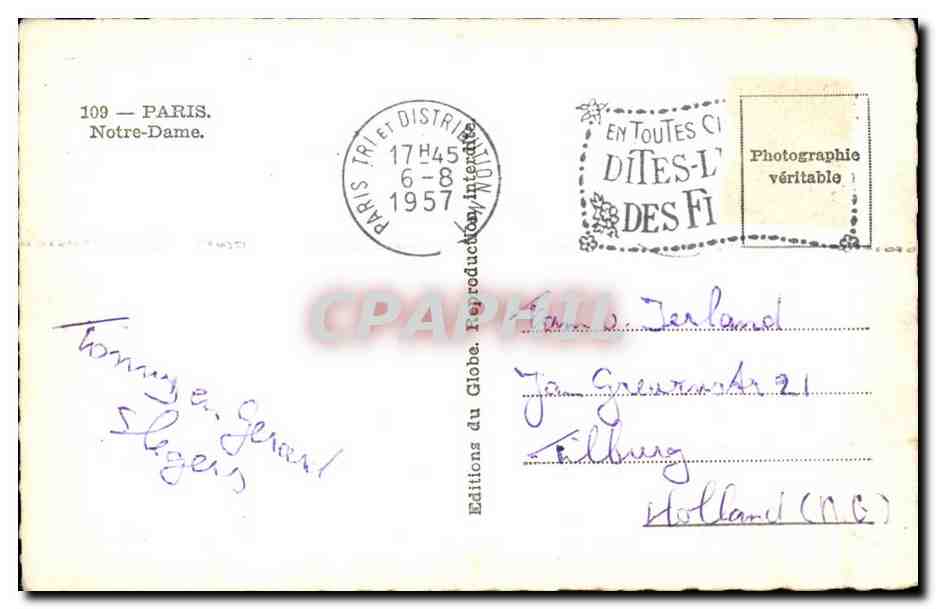 109 — PARIS.
Notre-Dame.
PARIS TRI ET DISTRIBUTION
17H45
6-8
1957
EN TOUTES CI
DITES-L'
DES FI
Photographie
véritable
Editions du Globe. Reproduction interdite.
CPAPHIL
Fam. v. Ierland
Jan 21
Tilburg
Holland (N.B)
Tonny en Gerard
Slegers